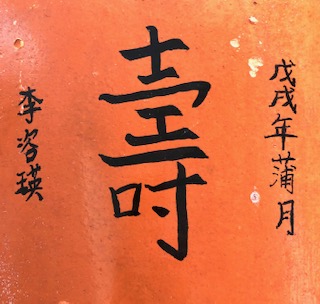 戊戌年蒲月
壽
李咨瑛